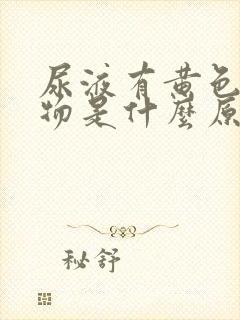 尿液有黄色
物是什麼原
秘舒